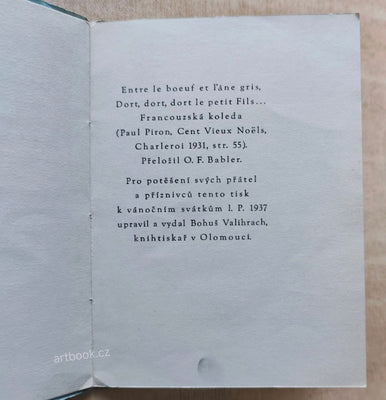 Entre le boeuf et l'áne gris,
Dort, dort, dort le petit Fils...
Francouzská koleda
(Paul Piron, Cent Vieux Noëls,
Charleroi 1931, str. 55).
Přeložil O. F. Babler.
Pro potěšení svých přátel
a příznivců tento tisk
k vánočním svátkům l. P. 1937
upravil a vydal Bohuš Valihrach,
knihtiskař v Olomouci.
artbook.cz